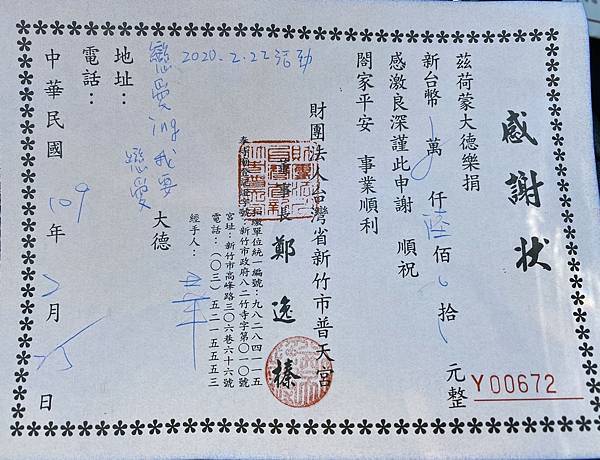 感謝狀
茲荷蒙大德樂捐
新台幣 萬 仟陸佰 拾 元整
Y00672
感激良深謹此申謝 順祝
閤家平安 事業順利
財團法人台灣省新竹市普天宮
董事長 鄭逸榛
扣繳單位統一編號:九八二八四一一五
新竹市政府八二竹寺字第〇一〇號
宮址:新竹市高峰路三〇六巷六十六號
電話:(〇三)五二一五五五三
經手人:
2020.2.22活動
戀愛ing我要戀愛 大德
地址:
電話:
中華民國 109 年 2 月 25 日